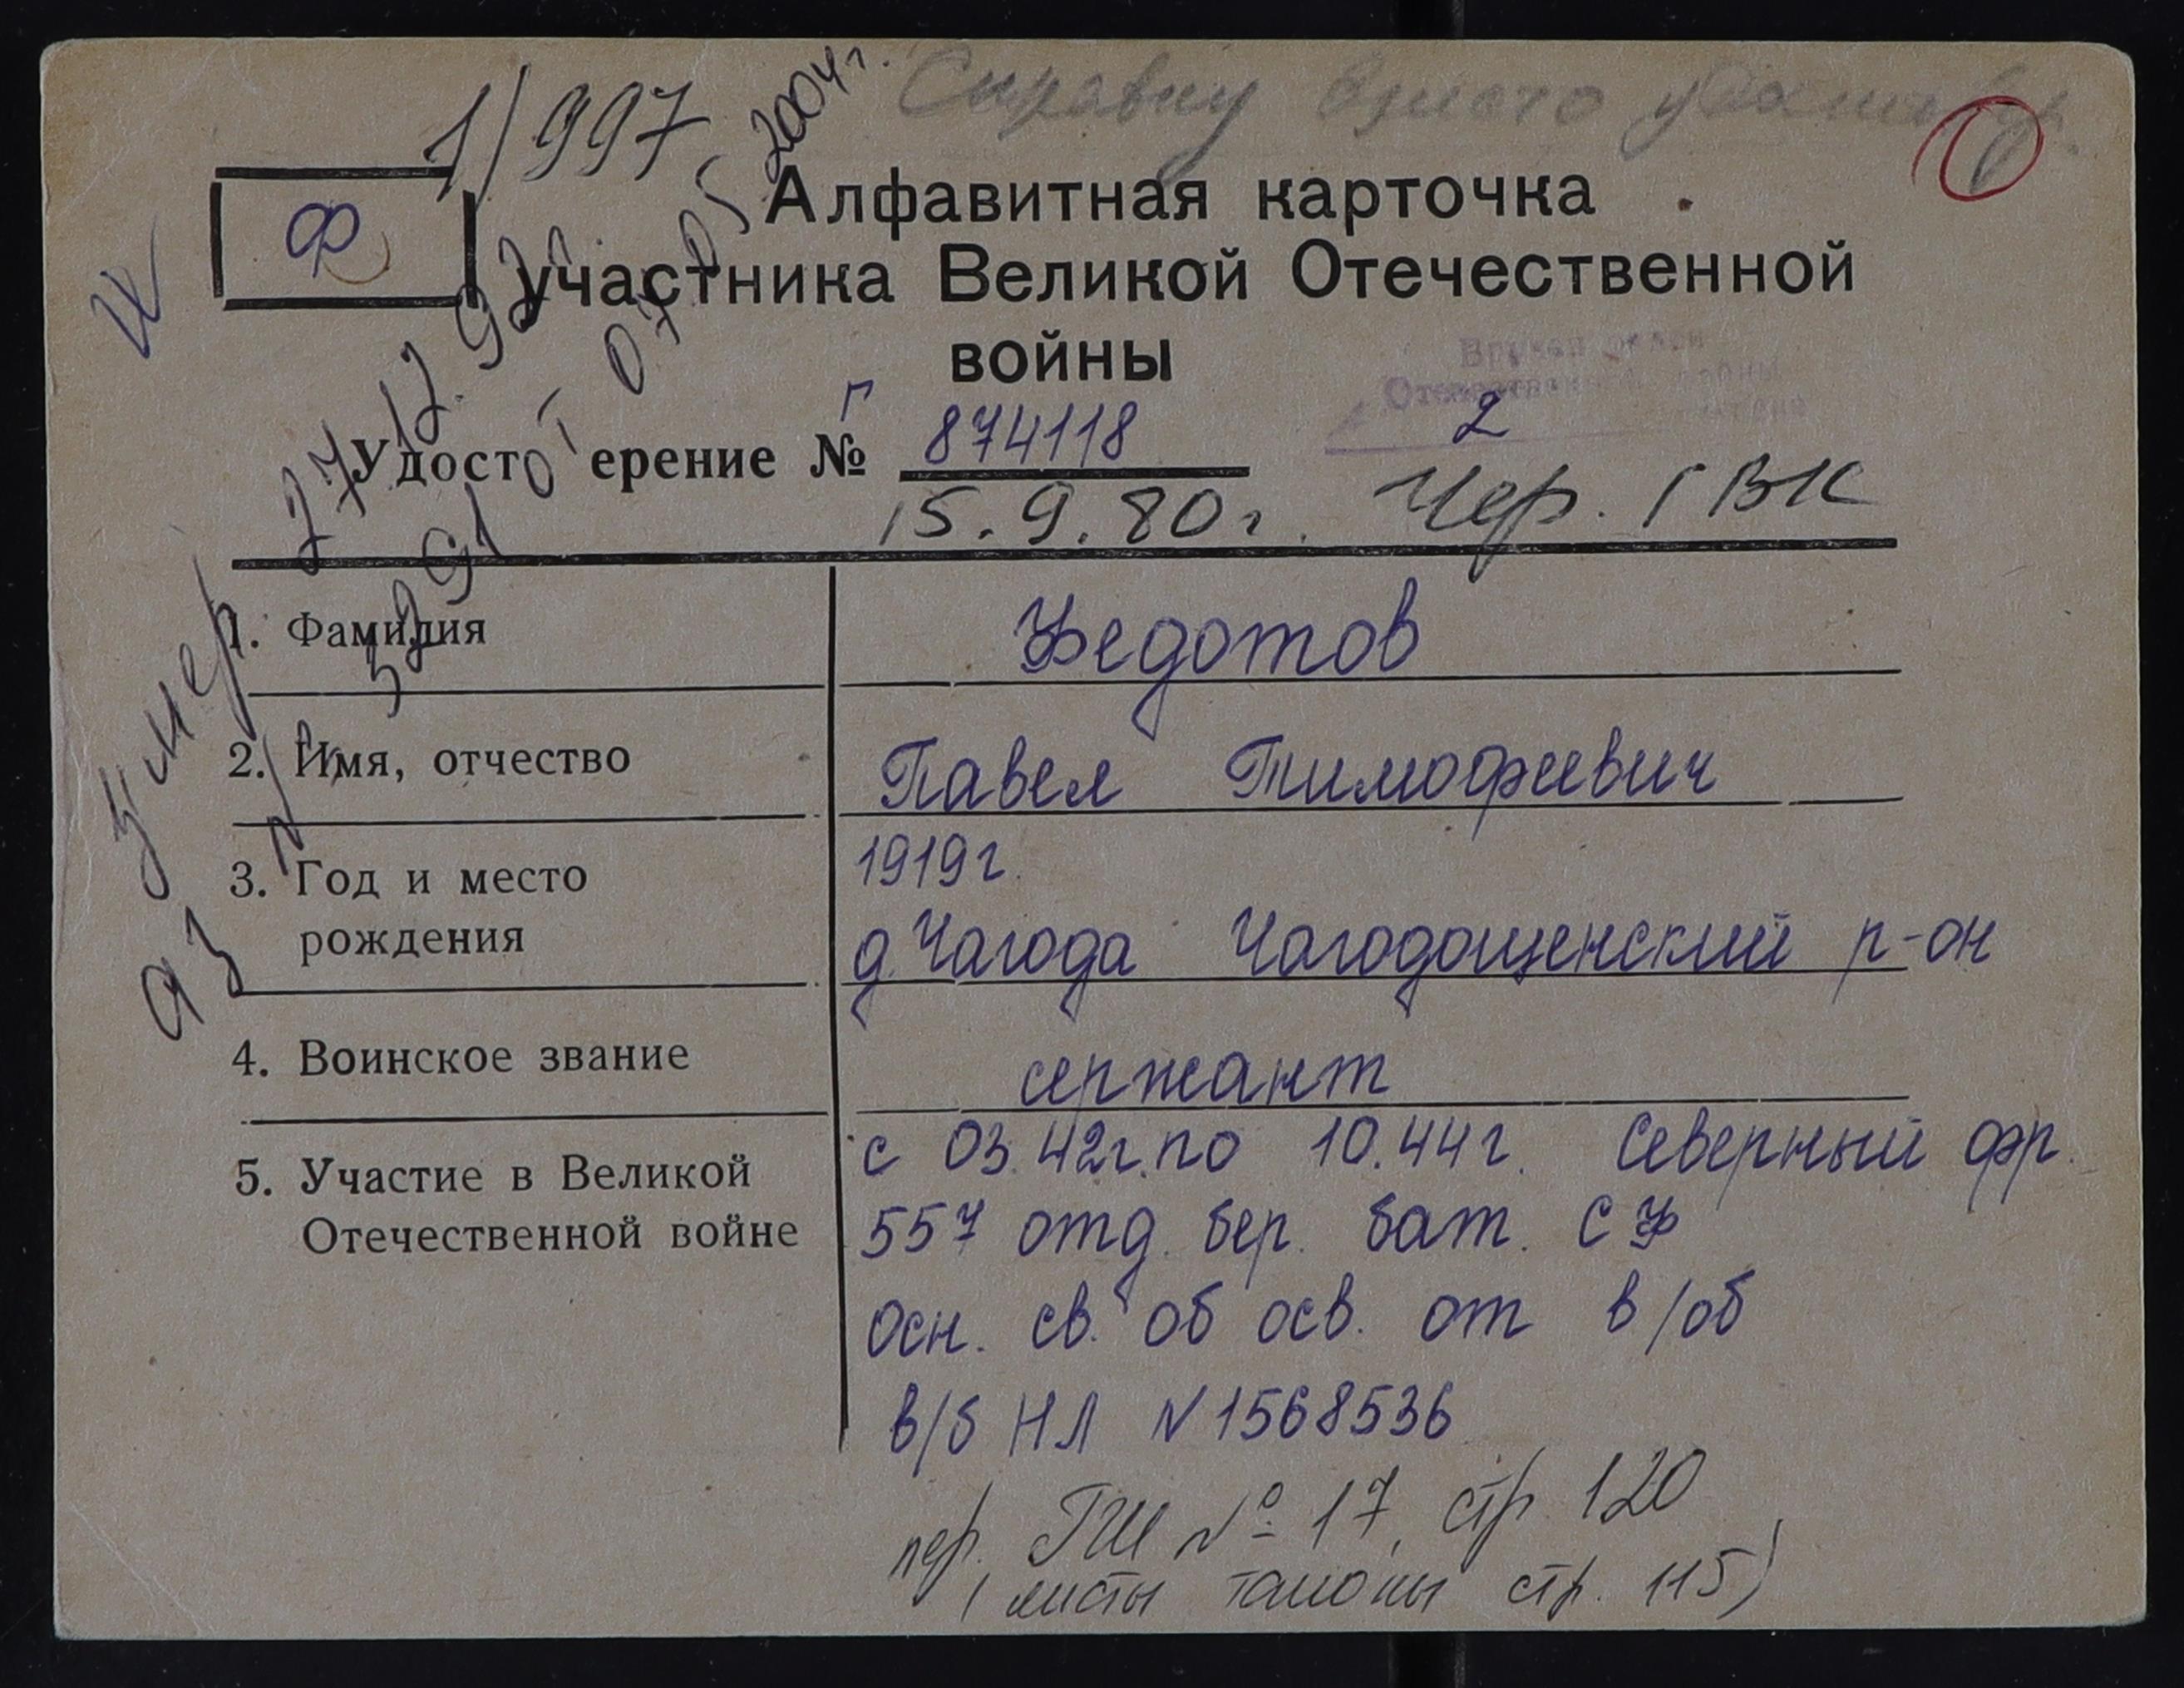 Справку
1/997
Ф
Алфавитная карточка
участника Великой Отечественной
войны
Отечественной войны
2
Удостоверение № Г 874118
15.9.80г. Чер. ГВК
умер 27.12.92г.
от 07.05 2004г.
1. Фамилия Федотов
2. Имя, отчество Павел Тимофеевич
3. Год и место 1919г.
рождения д. Чагода Чагодощенский р-он
4. Воинское звание сержант
5. Участие в Великой с 03.42г. по 10.44г. Северный фр.
Отечественной войне 557 отд. бер. бат. СФ
Осн. св. об осв. от в/об
в/б НЛ N 1568536
пер. ГШ № 17, стр. 120
(листы талоны стр. 115)